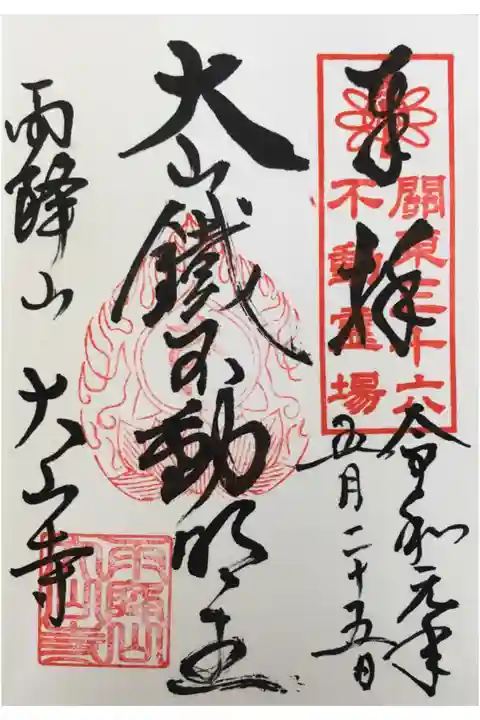 奉拝
關東三十六
不動霊場
令和元年
五月二十五日
大山鐵不動明王
雨降山 大山寺